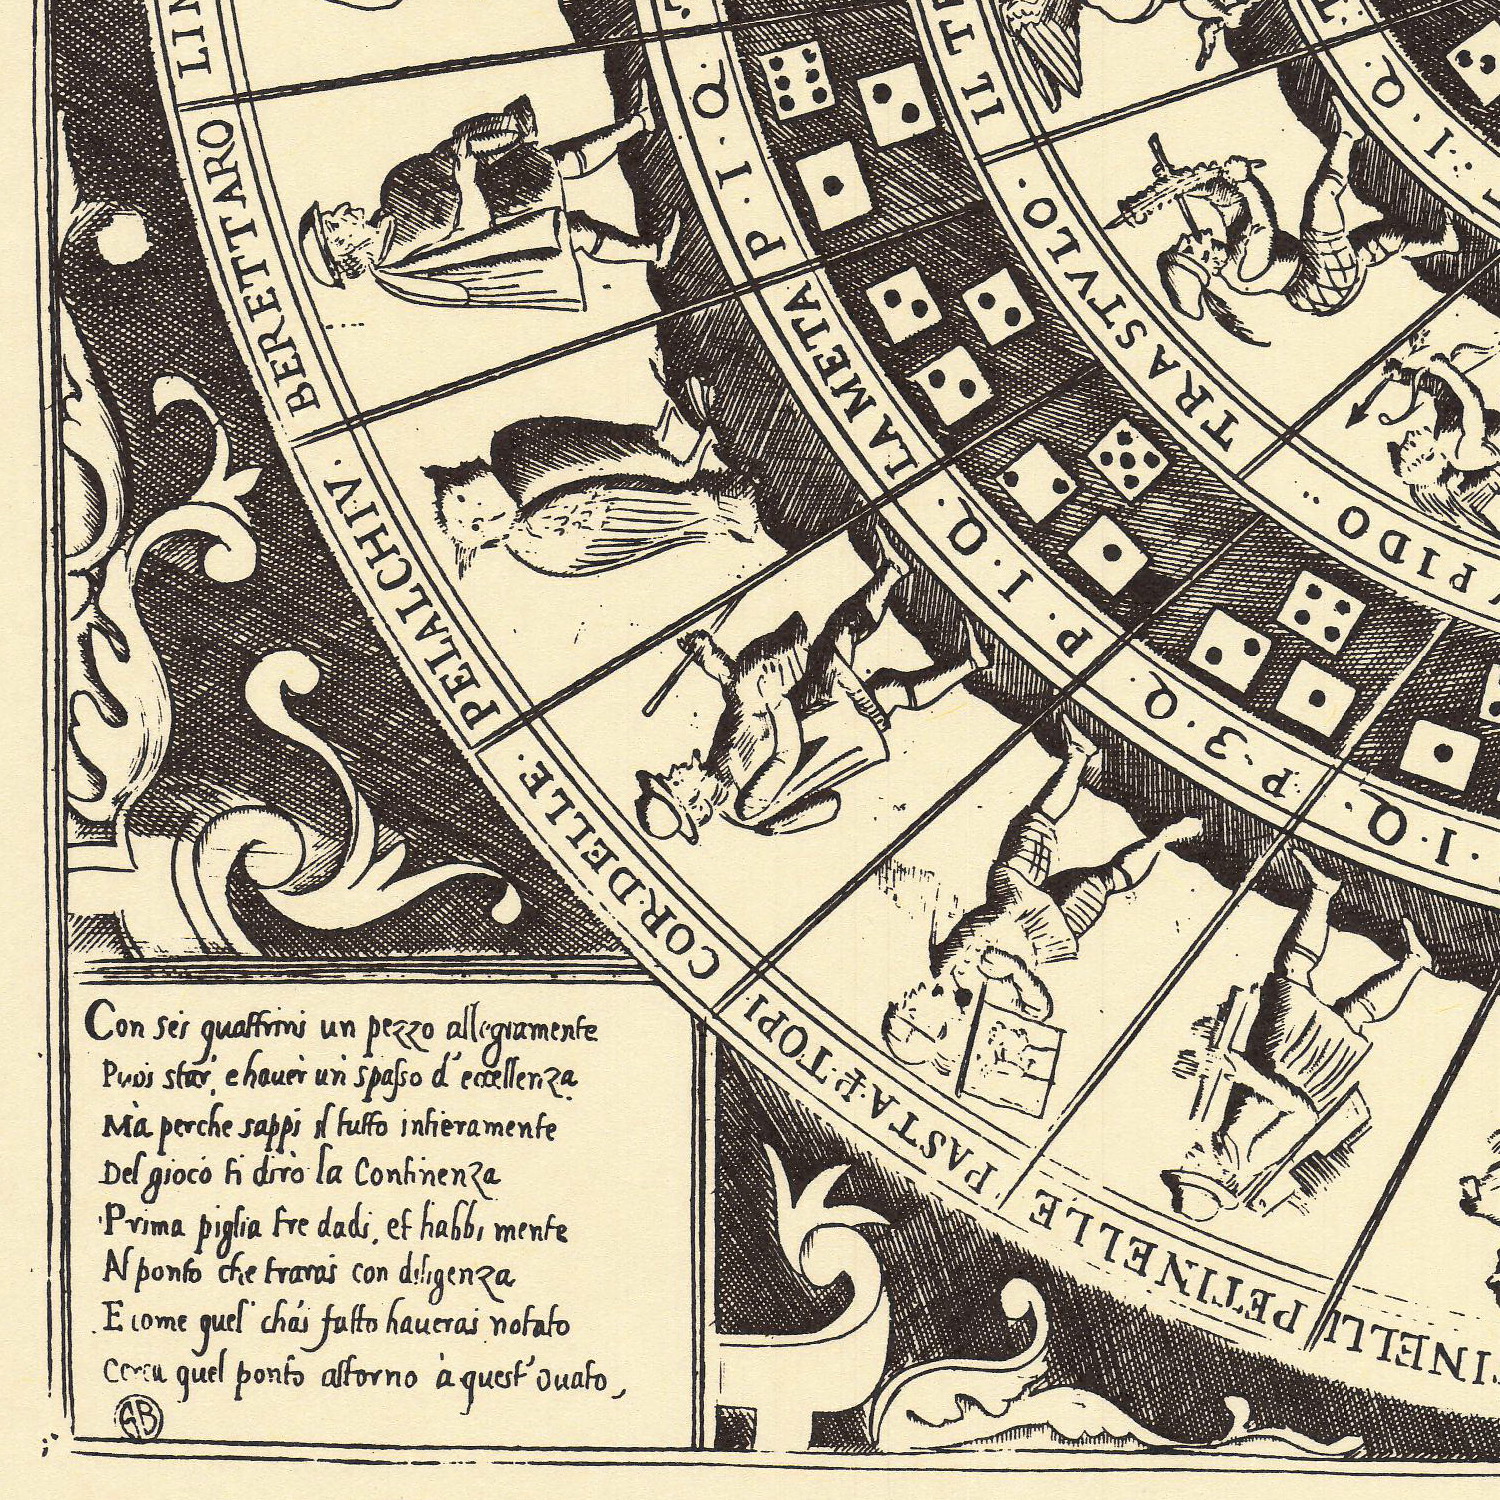 LIN
BERETTARO
PELALCHIV.
CORDELLE.
PASTA &TOPI
PETINELLE
TINELLI
P · I · Q
LAMETA
P · I · Q
P · 3 · Q
I · Q
IL TE
TRASTVLO.
PIDO
I · Q
Con sei quattrini un pezzo allegramente
Puoi star, e haver un spasso d'eccellenza
Mà perche sappi il tutto intieramente
Del gioco ti dirò la Continenza
Prima piglia tre dadi, et habbi mente
Al ponto che trarai con diligenza
E come quel ch'ai fatto haverai notato
Cerca quel ponto attorno à quest'Ouato,
GB